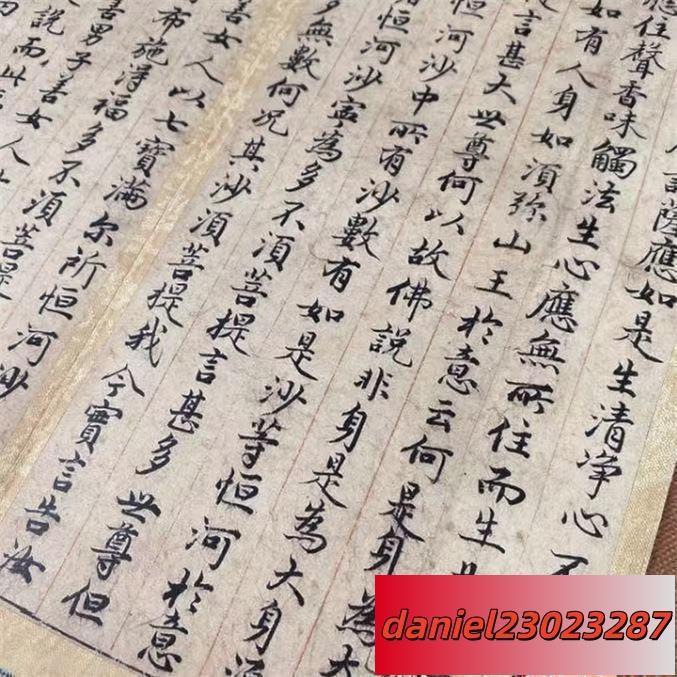 薩應如是生清净心不
住聲香味觸法生心應無所住而生
如有人身如須弥山王於意云何是身為大
言甚大世尊何以故佛說非身是為大身
恒河沙中所有沙數有如是沙等恒河於意
恒河沙寧為多不須菩提言甚多世尊但
多無數何况其沙須菩提我今實言告汝
善女人以七寶滿尔所恒河沙
布施得福多不須菩提
善男子善女人
說而此
daniel23023287